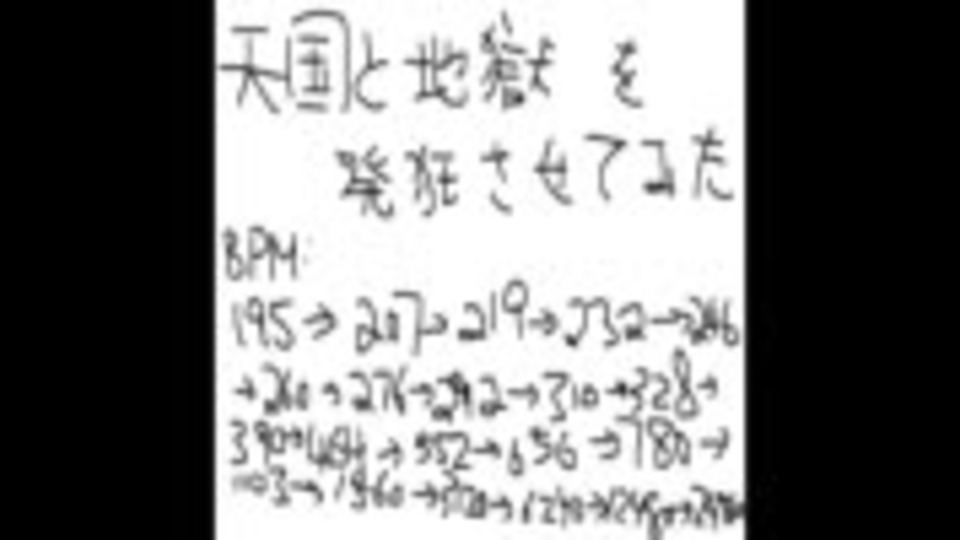 天国と地獄 を
発狂させてみた
BPM:
195→207→219→232→246
→260→276→292→310→328→
390→464→552→656→780→
1103→1560→3120→6240→12480→